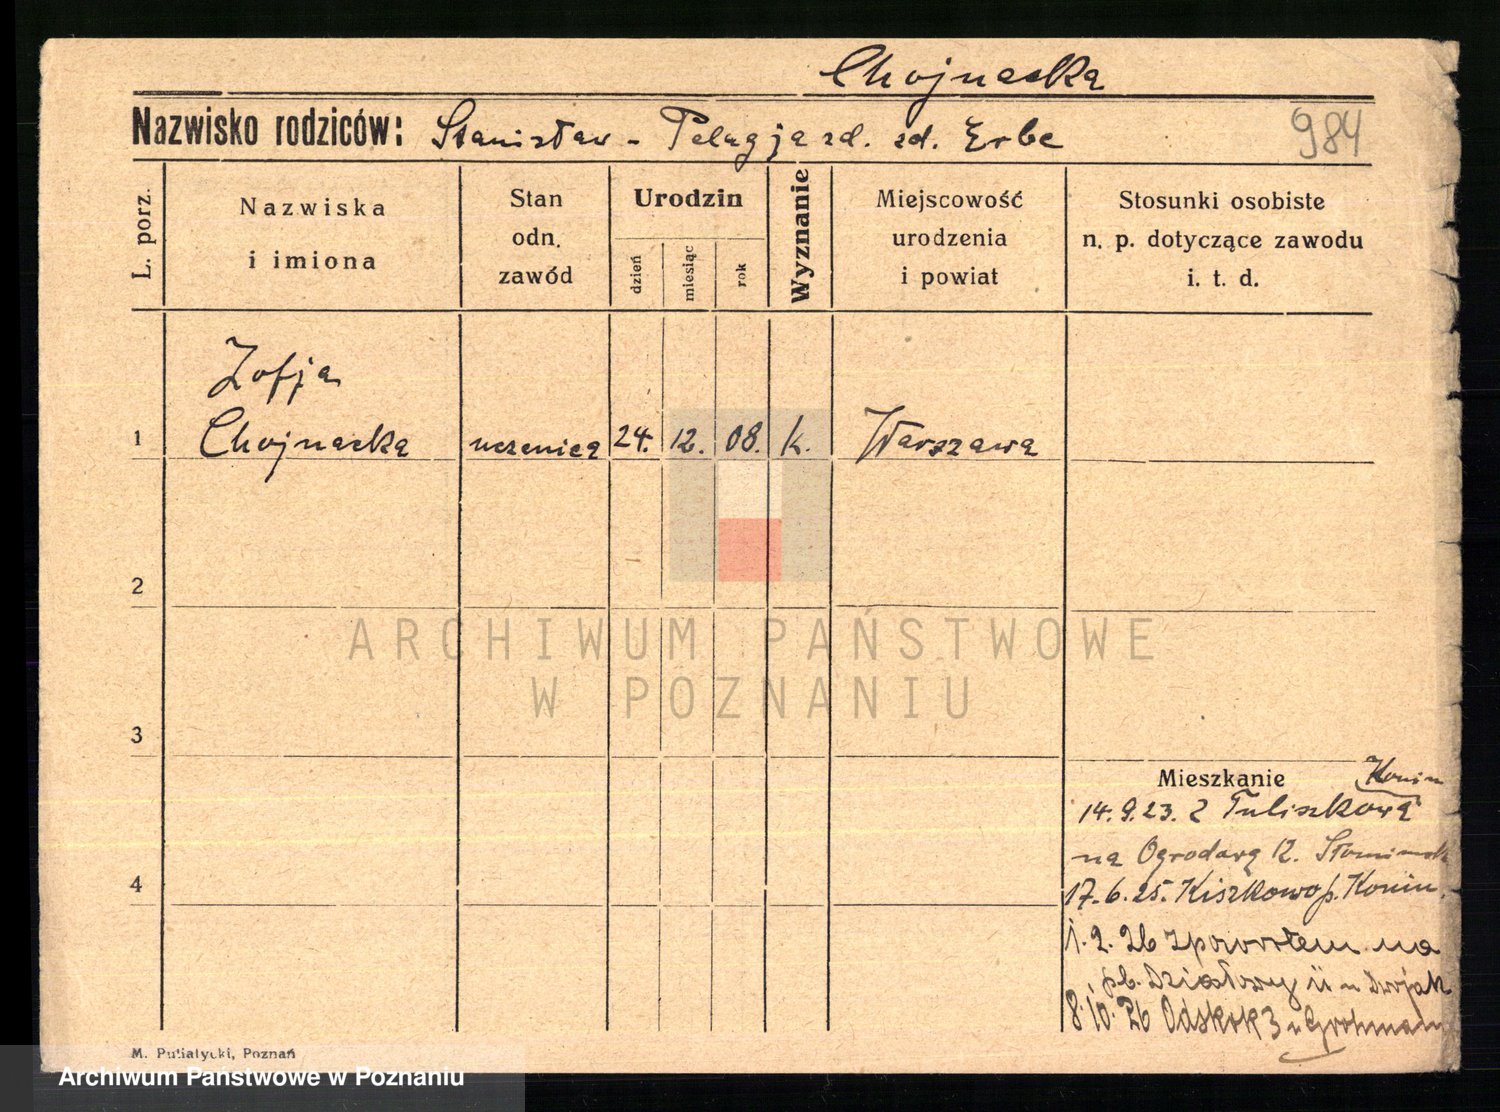 Chojnacka
Nazwisko rodziców: Stanisław - Pelagja zd. zd. Erbe 984
L. porz.
Nazwiska i imiona
Stan odn. zawód
Urodzin
dzień miesiąc rok
Wyznanie
Miejscowość urodzenia i powiat
Stosunki osobiste n. p. dotyczące zawodu i. t. d.
Zofja
1 Chojnacka uczenica 24. 12. 08. k. Warszawa
2
ARCHIWUM PAŃSTWOWE
W POZNANIU
3
Mieszkanie Konin
14.9.23. z Tuliszkowa
na Ogrodową 12.
4
17.6.25. Kiszkowo p. Konin.
1.2.26 zpowrotem na
pl. Działowy 11 u
8.10.26 3 u
M. Putiatycki, Poznań
Archiwum Państwowe w Poznaniu